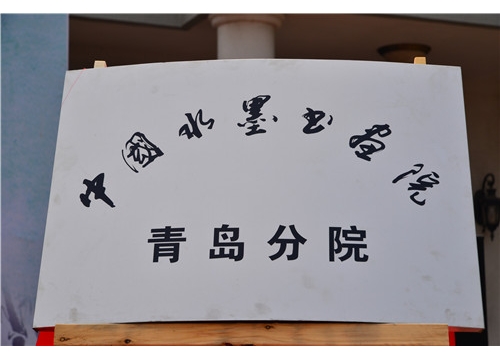 中國水墨书画院
青岛分院